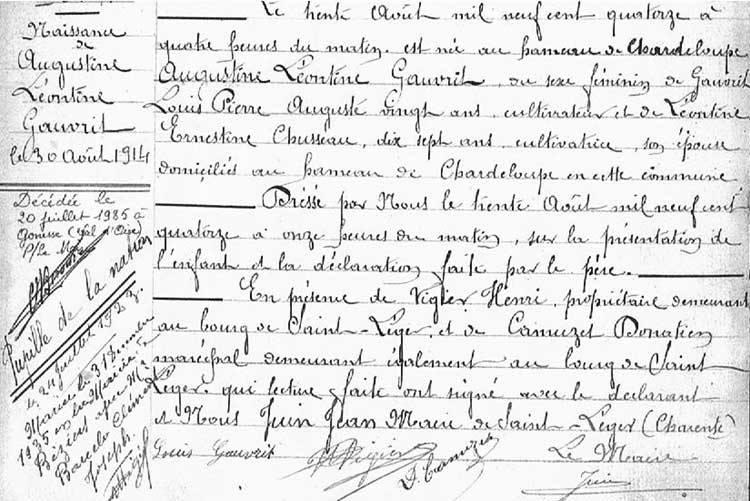 Naissance
de
Augustine
Léontine
Gauvrit
le 30 Août 1914
Décédée le
20 juillet 1985 à
Gonesse (Val d'Oise)
P/Le Maire
Pupille de la nation
24 juillet 1923.
Mariée le 31 Décembre
1935 en la Mairie de
Béziers avec
Barcelo
Joseph.
Le trente Août mil neuf cent quatorze à
quatre heures du matin. est née au hameau de Chardeloupe
Augustine Léontine Gauvrit, du sexe féminin de Gauvrit
Louis Pierre Auguste vingt ans, cultivateur et de Léontine
Ernestine Chusseau, dix sept ans, cultivatrice, son épouse
domiciliés au hameau de Chardeloupe en cette commune
Dressé par Nous le trente Août mil neuf cent
quatorze à onze heures du matin, sur la présentation de
l'enfant et la déclaration faite par le père.
En présence de Vigier Henri, propriétaire demeurant
au bourg de Saint-Léger, et de Camuzet Donatien
maréchal demeurant également au bourg de Saint
Léger. qui lecture faite ont signé avec le déclarant
et Nous Juin Jean Maire de Saint-Léger (Charente)
Louis Gauvrit Vigier D. Camuzet Le Maire
Juin